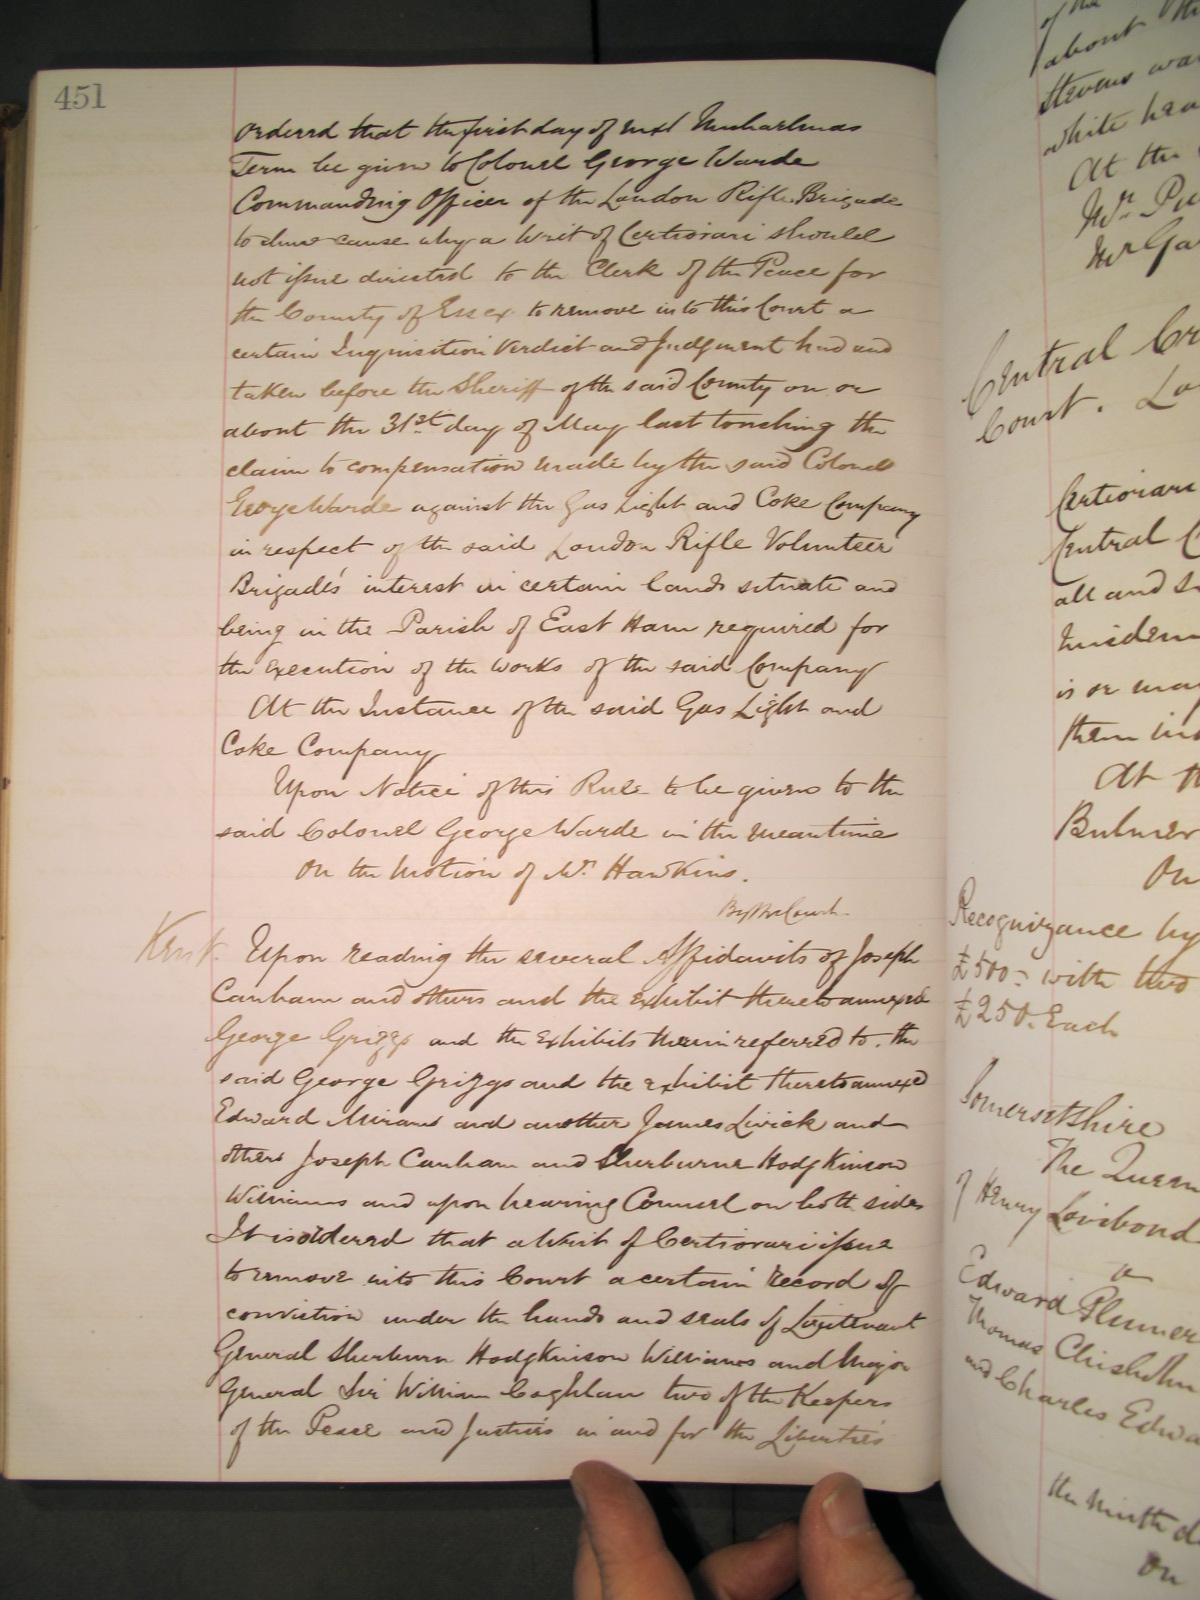 451
ordered that the first day of next Michaelmas
Term be given to Colonel George Warde
Commanding Officer of the London Rifle Brigade
to shew cause why a Writ of Certiorari should
not issue directed to the Clerk of the Peace for
the County of Essex to remove into this Court a
certain Inquisition Verdict and Judgment had and
taken before the Sheriff of the said County on or
about the 31st day of May last touching the
claim to compensation made by the said Colonel
George Warde against the Gas Light and Coke Company
in respect of the said London Rifle Volunteer
Brigade's interest in certain lands situate and
being in the Parish of East Ham required for
the execution of the works of the said Company
At the Instance of the said Gas Light and
Coke Company
Upon Notice of this Rule to be given to the
said Colonel George Warde in the meantime
On the Motion of Mr. Hawkins.
By the Court.
Kent. Upon reading the several Affidavits of Joseph
Canham and others and the exhibit thereto annexed
George Griggs and the Exhibits therein referred to. the
said George Griggs and the exhibit thereto annexed
Edward and another James Livick and
others Joseph Canham and Sherburne Hodgkinson
Williams and upon hearing Counsel on both sides
It is ordered that a Writ of Certiorari issue
to remove into this Court a certain Record of
conviction under the hands and seals of Lieutenant
General Sherburn Hodgkinson Williams and Major
General Sir William Coghlan two of the Keepers
of the Peace and Justices in and for the Liberties
of the
about the
Stevens was
white
At the
Mr.
Mr
Central
Court.
Certiorari
Central
all and
misdem
is or may
them
At
Bulmer
On
Recognizance by
£500 = with two
£250. Each
Somersetshire
The Queen
of Henry Lovibond
v
Edward Plummer
Thomas Chisholm
and Charles
the ninth
On